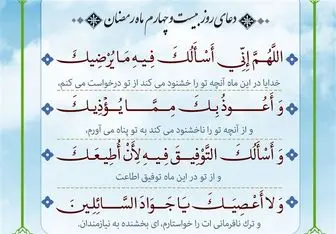 دعای روز بیست و چهارم ماه رمضان
اللَّهُمَّ إِنِّي أَسْأَلُكَ فِيهِ مَا يُرْضِيكَ
خدایا در این ماه آنچه تو را خشنود می کند از تو درخواست می کنم،
وَ أَعُوذُ بِكَ مِمَّا يُؤْذِيكَ
و از آنچه تو را ناخشنود می کند به تو پناه می آورم،
وَ أَسْأَلُكَ التَّوْفِيقَ فِيهِ لِأَنْ أُطِيعَكَ
و از تو در این ماه توفیق اطاعت
وَ لا أَعْصِيَكَ يَا جَوَادَ السَّائِلِينَ
و ترک نافرمانی ات را خواستارم، ای بخشنده به نیازمندان.